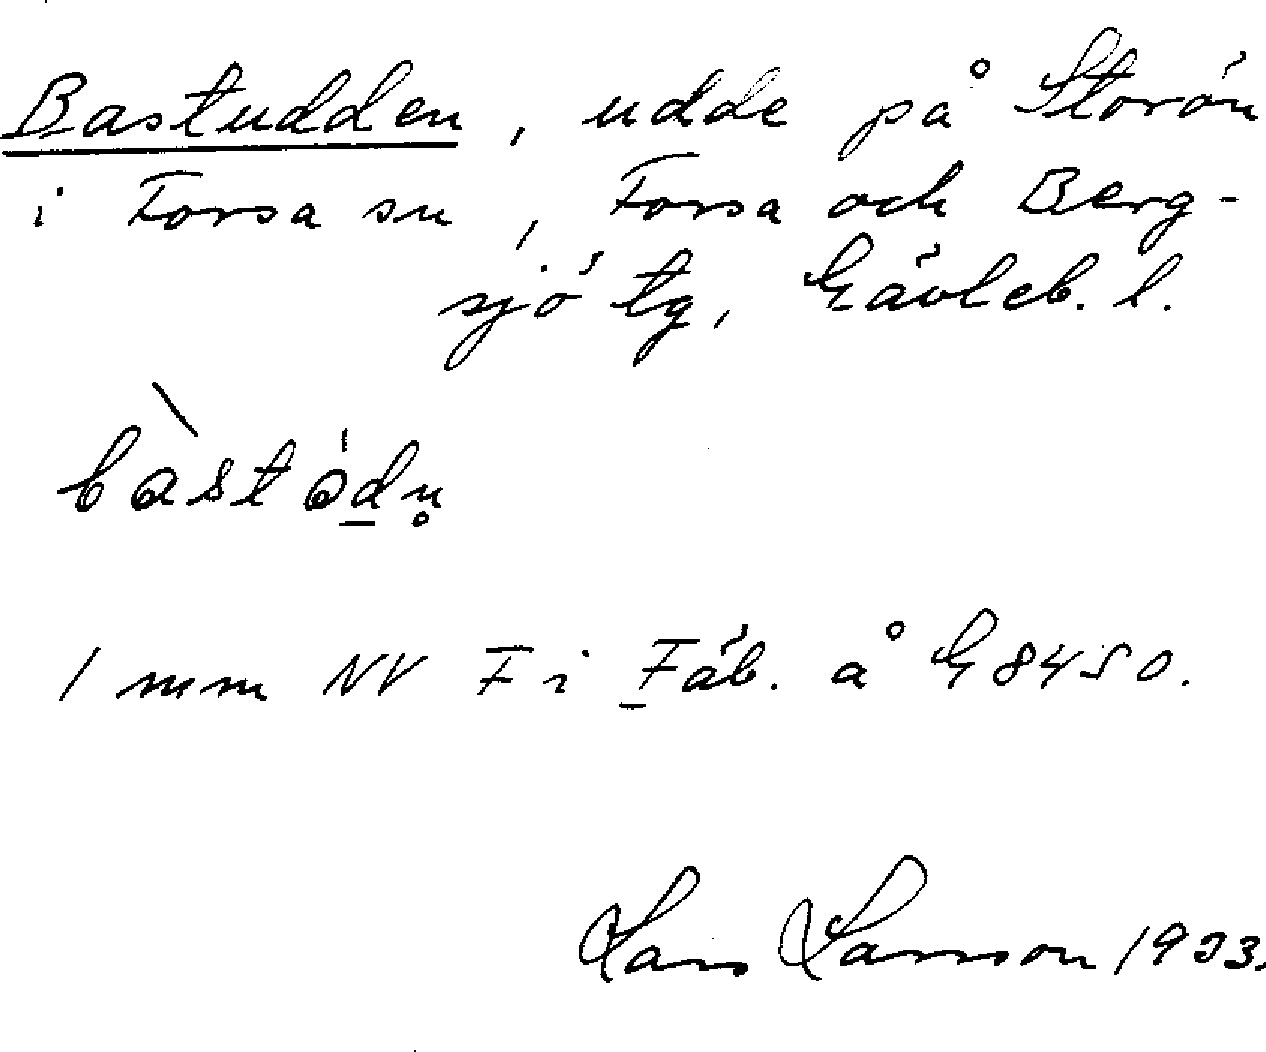 Bastudden, udde på Storön
i Forsa sn, Forsa och Berg-
sjö tg, Gävleb. l.
1 mm NV F i Fäb. å G 8450.
Lars Larsson 1933.